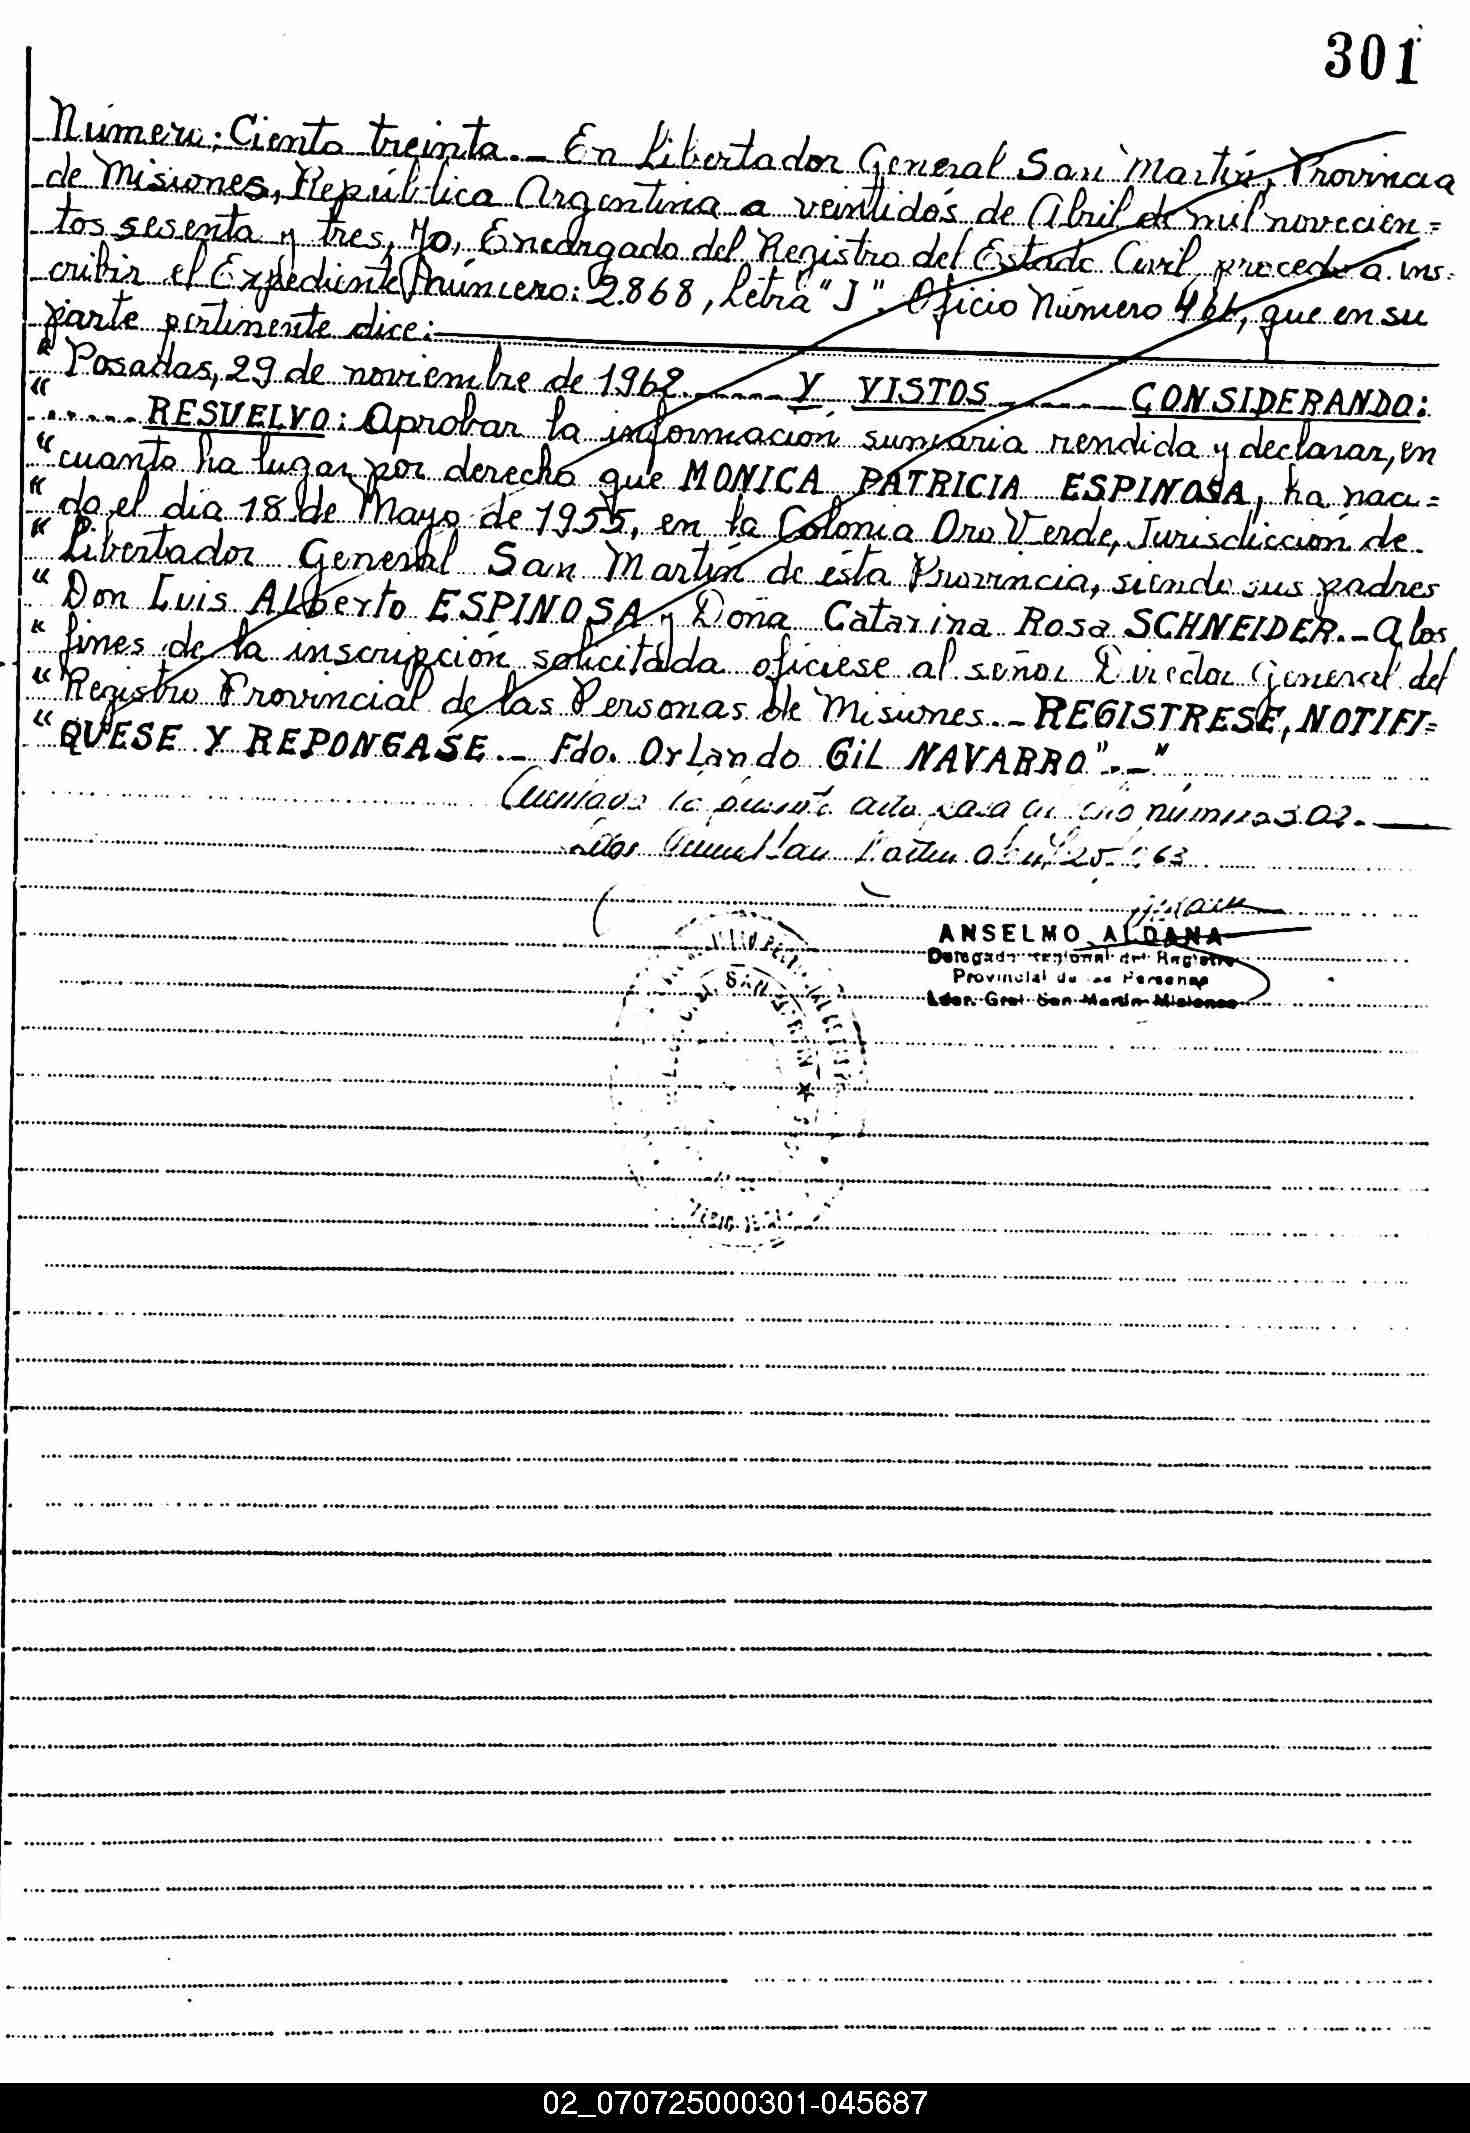 301
Número: Ciento treinta._ En Libertador General San Martín, Provincia
de Misiones, República Argentina a veintidós de Abril de mil novecien=
tos sesenta y tres, Yo, Encargado del Registro del Estado Civil, procedo a ins=
cribir el Expediente Número: 2.868, Letra "J". Oficio Número 466, que en su
parte pertinente dice:
" Posadas, 29 de noviembre de 1962 ...... Y VISTOS ...... CONSIDERANDO:
" ...... RESUELVO: Aprobar la información sumaria rendida y declarar, en
" cuanto ha lugar por derecho que MONICA PATRICIA ESPINOSA, ha naci=
" do el día 18 de Mayo de 1955, en la Colonia Oro Verde, Jurisdicción de
" Libertador General San Martín de ésta Provincia, siendo sus padres
" Don Luis Alberto ESPINOSA y Doña Catarina Rosa SCHNEIDER._ A los
" fines de la inscripción solicitada ofíciese al señor Director General del
" Registro Provincial de las Personas de Misiones._ REGISTRESE, NOTIFI=
" QUESE Y REPONGASE._ Fdo. Orlando GIL NAVARRO"._"
la presente acta pasa al número 302._
San Martín abril 25 1963
ANSELMO ALDANA
Delegado Regional del Registro
Provincial de las Personas
Ldor. Gral. San Martín - Misiones
SAN MARTIN
02_070725000301-045687